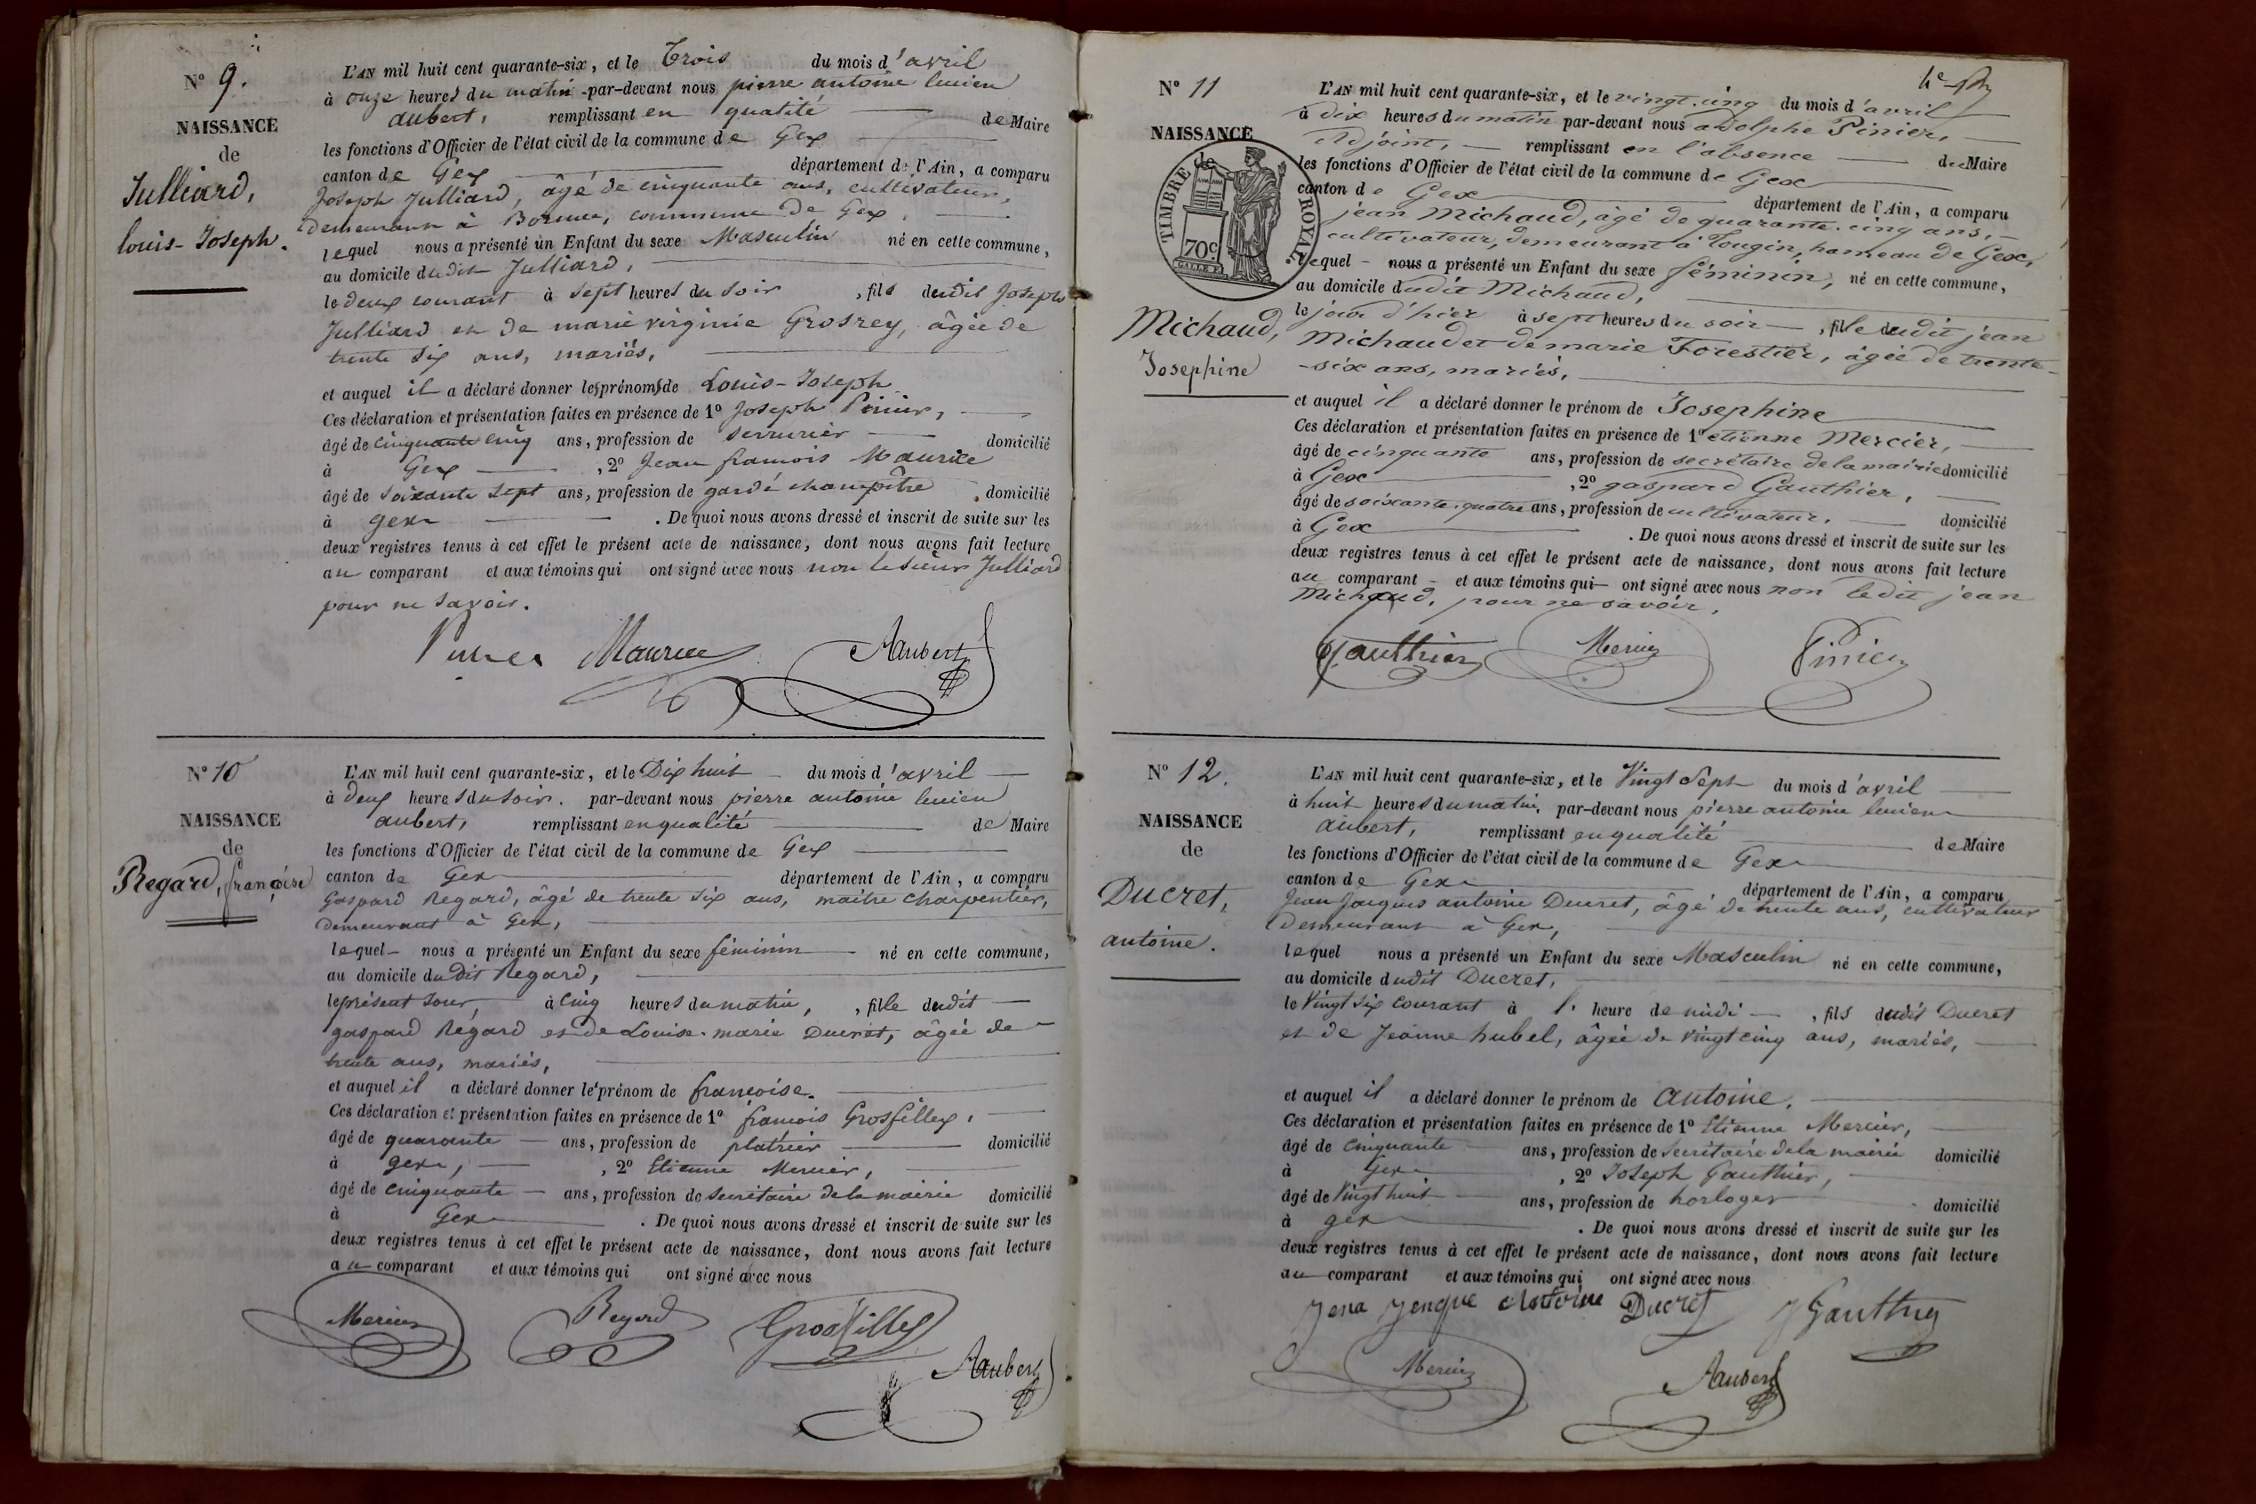 N° 9.
NAISSANCE
de
Julliard,
louis-Joseph.
L'AN mil huit cent quarante-six, et le Trois du mois d'avril
à onze heures du matin par-devant nous pierre antoine lucien
aubert, remplissant en qualité de Maire
les fonctions d'Officier de l'état civil de la commune de Gex
canton de Gex département de l'Ain, a comparu
Joseph Julliard, âgé de cinquante ans, cultivateur,
demeurant à commune de Gex,
lequel nous a présenté un Enfant du sexe Masculin né en cette commune,
au domicile dudit Julliard,
le deux courant à sept heures du soir, fils dudit Joseph
Julliard et de marie virginie Grosrey, âgée de
trente six ans, mariés,
et auquel il a déclaré donner les prénoms de Louis-Joseph
Ces déclaration et présentation faites en présence de 1° Joseph Pinier,
âgé de cinquante cinq ans, profession de serrurier domicilié
à Gex, 2° Jean francois Maurice
âgé de soixante sept ans, profession de garde champêtre domicilié
à gex. De quoi nous avons dressé et inscrit de suite sur les
deux registres tenus à cet effet le présent acte de naissance, dont nous avons fait lecture
au comparant et aux témoins qui ont signé avec nous non le sieur Julliard
pour ne savoir.
Maurice Aaubert
N° 10
NAISSANCE
de
Regard, françoise
L'AN mil huit cent quarante-six, et le Dix huit du mois d'avril
à deux heures du soir. par-devant nous pierre antoine lucien
aubert, remplissant en qualité de Maire
les fonctions d'Officier de l'état civil de la commune de Gex
canton de Gex département de l'Ain, a comparu
Gaspard Regard, âgé de trente six ans, maître charpentier,
demeurant à Gex,
lequel nous a présenté un Enfant du sexe féminin né en cette commune,
au domicile dudit Regard,
le présent jour, à cinq heures du matin, fille dudit
gaspard Régard et de Louise-marie Ducret, âgée de
trente ans, mariés,
et auquel il a déclaré donner le prénom de francoise.
Ces déclaration et présentation faites en présence de 1° francois Grosfilley,
âgé de quarante ans, profession de platrier domicilié
à gex, 2° Etienne Mercier,
âgé de cinquante ans, profession de secrétaire de la mairie domicilié
à Gex. De quoi nous avons dressé et inscrit de suite sur les
deux registres tenus à cet effet le présent acte de naissance, dont nous avons fait lecture
au comparant et aux témoins qui ont signé avec nous
Mercier Regard Grosfilley
Aaubert
N° 11
NAISSANCE
de
TIMBRE ROYAL
70c
Michaud,
Josephine
L'AN mil huit cent quarante-six, et le vingt-cinq du mois d'avril
à dix heures du matin par-devant nous adolphe Pinier,
Adjoint, remplissant en l'absence de Maire
les fonctions d'Officier de l'état civil de la commune de Gex
canton de Gex département de l'Ain, a comparu
jean Michaud, âgé de quarante-cinq ans,
cultivateur, demeurant à Tougin, hameau de Gex,
lequel nous a présenté un Enfant du sexe féminin, né en cette commune,
au domicile dudit Michaud,
le jour d'hier à sept heures du soir, fille dudit jean
Michaud et de marie Forestier, âgée de trente-
-six ans, mariés,
et auquel il a déclaré donner le prénom de Josephine
Ces déclaration et présentation faites en présence de 1° etienne Mercier,
âgé de cinquante ans, profession de secrétaire de la mairie domicilié
à Gex, 2° gaspard Gauthier,
âgé de soixante-quatre ans, profession de cultivateur, domicilié
à Gex. De quoi nous avons dressé et inscrit de suite sur les
deux registres tenus à cet effet le présent acte de naissance, dont nous avons fait lecture
au comparant et aux témoins qui ont signé avec nous non ledit jean
Michaud, pour ne savoir.
Gauthier Mercier Pinier
N° 12.
NAISSANCE
de
Ducret,
antoine.
L'AN mil huit cent quarante-six, et le Vingt Sept du mois d'avril
à huit heures du matin, par-devant nous pierre antoine lucien
aubert, remplissant en qualité de Maire
les fonctions d'Officier de l'état civil de la commune de Gex
canton de Gex département de l'Ain, a comparu
Jean Jacques antoine Ducret, âgé de trente ans, cultivateur
Demeurant à Gex,
lequel nous a présenté un Enfant du sexe Masculin né en cette commune,
au domicile dudit Ducret,
le Vingt six courant à l'heure de midi, fils dudit Ducret
et de Jeanne hubel, âgée de vingt cinq ans, mariés,
et auquel il a déclaré donner le prénom de antoine.
Ces déclaration et présentation faites en présence de 1° Etienne Mercier,
âgé de cinquante ans, profession de secrétaire de la mairie domicilié
à Gex, 2° Joseph Gauthier,
âgé de Vingt huit ans, profession de horloger domicilié
à gex. De quoi nous avons dressé et inscrit de suite sur les
deux registres tenus à cet effet le présent acte de naissance, dont nous avons fait lecture
au comparant et aux témoins qui ont signé avec nous
Antoine Ducret J Gauthier
Mercier Aaubert